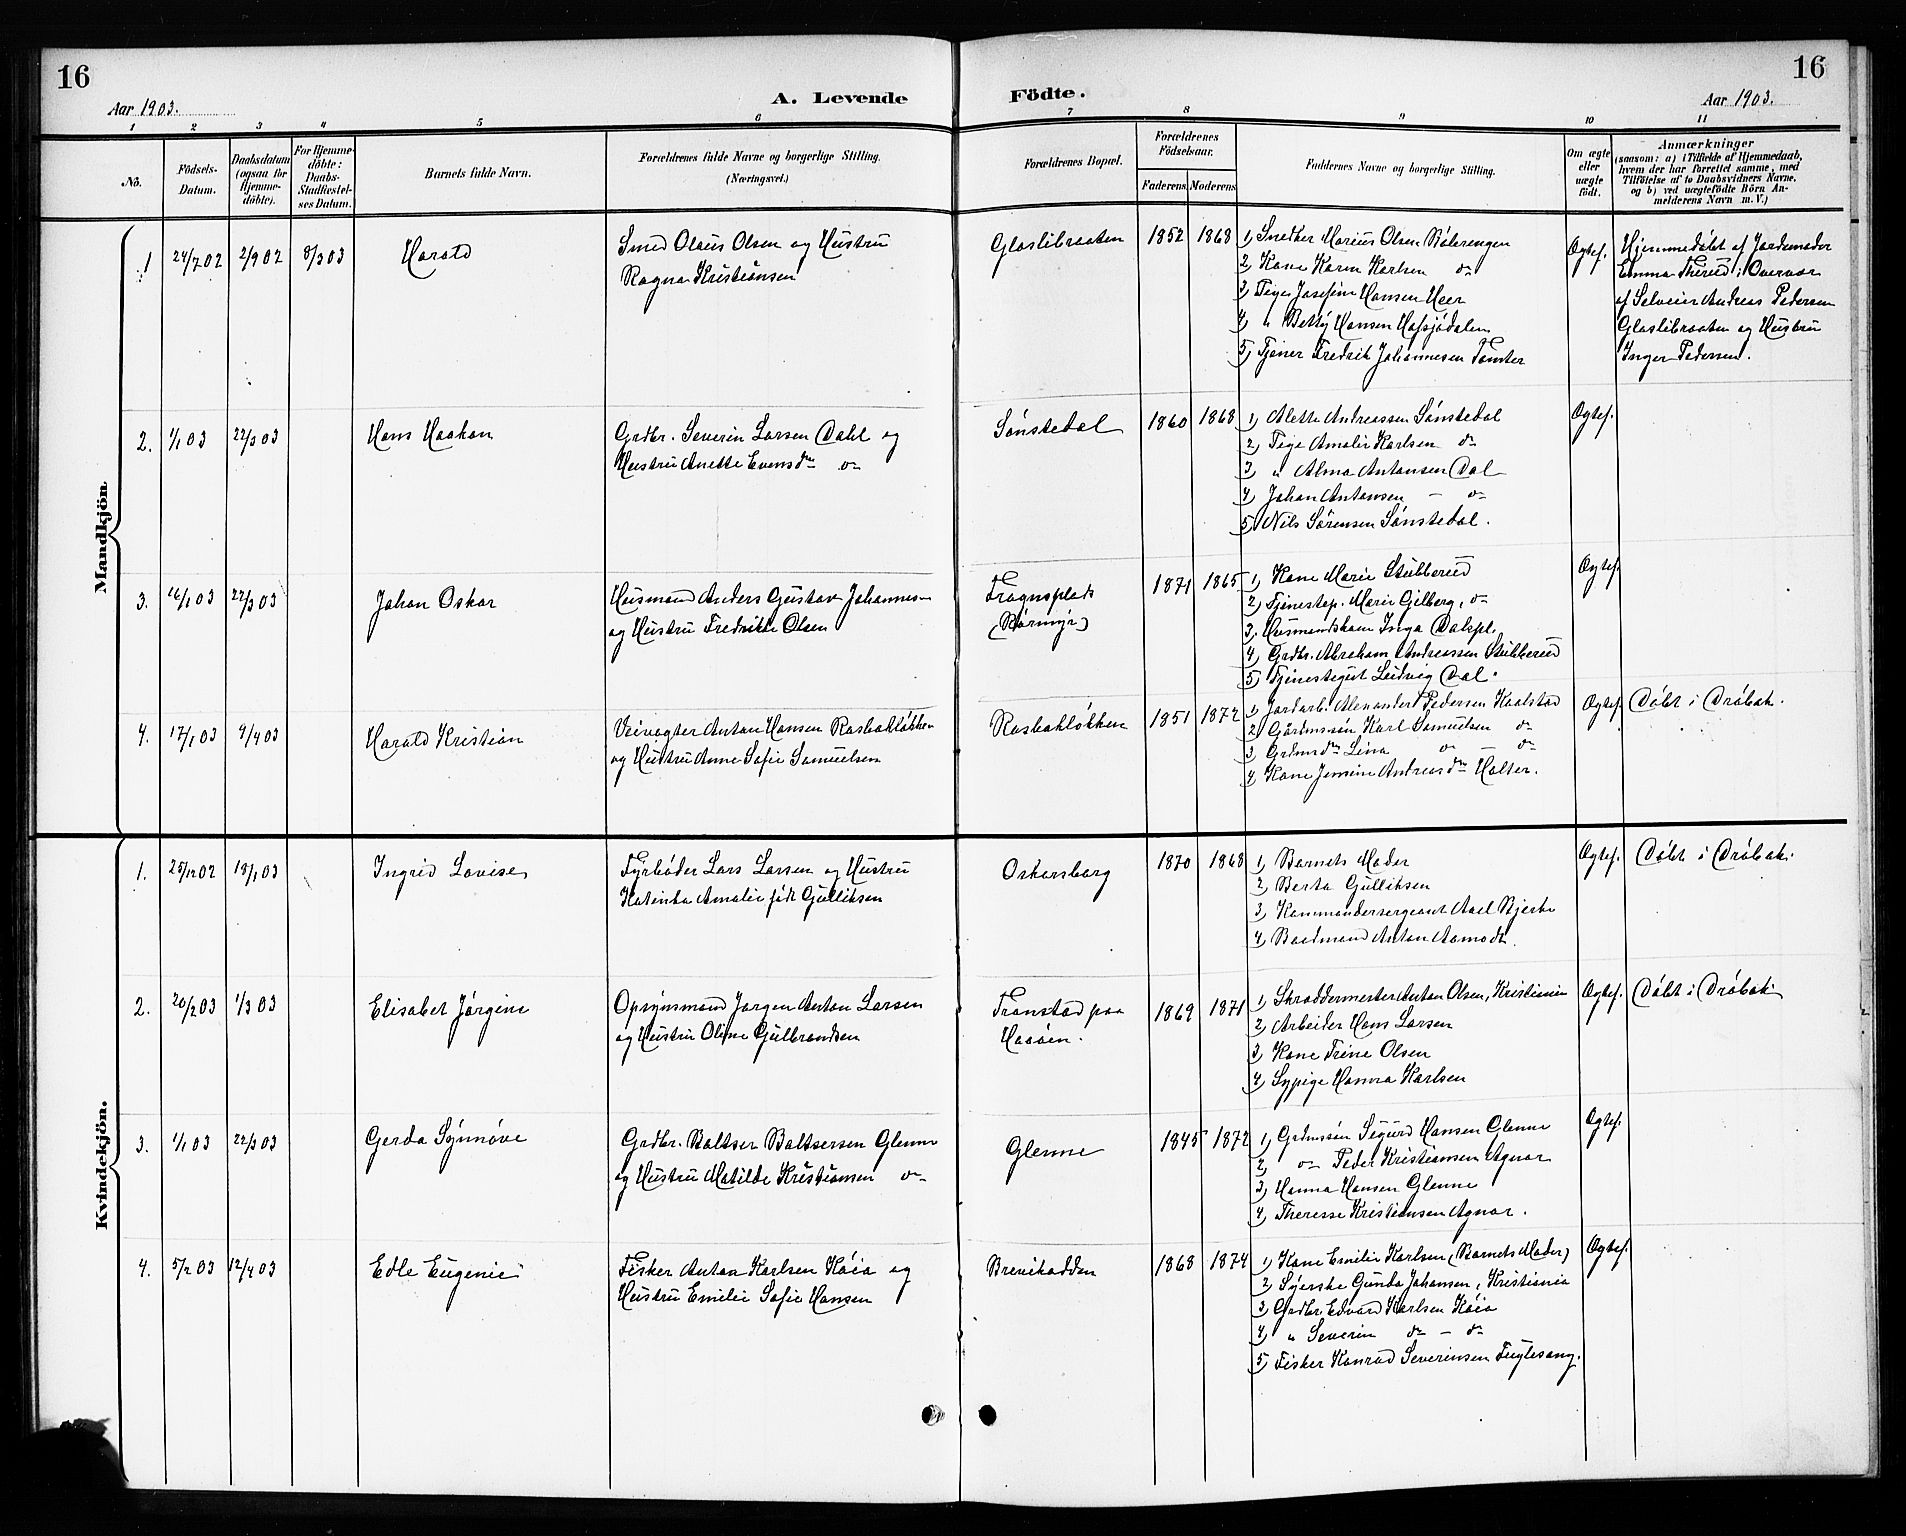 16
16
Aar 1903.
A. Levende
Födte.
Aar 1903.
1 2 3 4 5 6 7 8 9 10 11
No.
Födsels-
Datum.
Daabsdatum
(ogsaa for
Hjemme-
döbte).
For Hjemme-
döbte:
Daabs-
Stadfæstel-
ses Datum.
Barnets fulde Navn.
Forældrenes fulde Navne og borgerlige Stilling.
(Næringsvei.)
Forældrenes Bopæl.
Forældrenes
Födselsaar.
Faderens.
Moderens.
Faddernes Navne og borgerlige Stilling.
Om ægte
eller
uægte
födt.
Anmærkninger
(saasom: a) i Tilfælde af Hjemmedaab,
hvem der har forrettet samme, med
Tilföielse af to Daabsvidners Navne,
og b) ved uægtefödte Börn An-
melderens Navn m. V.)
Mandkjön
1 24/7 02 2/9 02 8/3 03 Harald
Smed Olaus Olsen og Hustru
Ragna Kristiansen
Glaslibraaten 1852 1868
1) Snedker Marius Olsen Bølerengen
2) Kone Karen Karlsen do
3) Pige Josefine Hansen Heer
4) " Betty Hansen
5) Tjener Fredrik Johannesen Tomter
Ægtef.
Hjemmedøbt af Jordemoder
Emma Thirud i Overvær
af Selveier Andreas Pedersen
Glaslibraaten og Hustru
Inger Pedersen.
2. 1/1 03 22/3 03 Hans Haakon
Grdbr. Severin Larsen Dahl og
Hustru Anette Evensdtr do
Sønstedal 1860 1868
1) Alette Andreassen Sønstedal
2) Pige Amalie Karlsen do
3) " Alma Antonsen Dal
4) Johan Antonsen - do
5) Nils Sørensen Sønstedal.
Ægtef.
3. 16/1 03 22/3 03 Johan Oskar
Husmand Anders Gustav Johannes-
og Hustru Fredrikke Olsen
Frognsplads
(Rørmyr)
1871 1865
1) Kone Marie Stubberud
2) Tjenestep. Marie Gilberg, do
3. Husmandskone Inga Dalspl.
4) Grdbr. Abraham Andreassen Stubberud
5) Tjenestegut Ludvig Dal.
Ægtef.
4. 17/1 03 9/4 03 Harald Kristian
Veivogter Anton Hansen Rasbakløkken
og Hustru Anne Sofie Samuelsen
Rasbakløkken 1851 1872
1) Jordarb. Alexander Pedersen Kaalstad
2) Gårdmsøn Karl Samuelsen do
3) Grdmsdtr Lina do - do
4) Kone Jensine Andreasdtr Holter.
Ægtef. Døbt i Drøbak.
Kvindekjön.
1. 25/12 02 18/1 03 Ingrid Lovise
Fyrbøder Lars Larsen og Hustru
Katinka Amalie født Gulliksen
Oskarsborg 1870 1868
1) Barnets Moder
2) Berta Gulliksen
3) Kommandersergeant Axel Bjerke
4) Baadmand Anton Aamodt.
Ægtef. Døbt i Drøbak.
2. 20/2 03 1/3 03 Elisabet Jørgine
Opsynsmand Jørgen Anton Larsen
og Hustru Oline Gulbrandsen
Tronstad paa
Haaøen.
1869 1871
1) Skreddermester Anton Olsen, Kristiania
2) Arbeider Hans Larsen
3) Kone Trine Olsen
4) Sypige Hanna Karlsen
Ægtef. Døbt i Drøbak.
3. 1/1 03 22/3 03 Gerda Synnøve
Grdbr. Baltser Baltsersen Glenne
og Hustru Matilde Kristiansen do
Glenne 1845 1872
1) Grdmssøn Sigurd Hansen Glenne
2) do Peder Kristiansen Agnor
3) Hanna Hansen Glenne
4) Theresse Kristiansen Agnor.
Ægtef.
4. 5/2 03 12/4 03 Edle Eugenie
Fisker Anton Karlsen Kaia og
Hustru Emilie Sofie Hansen
Brevikodden 1868 1874
1) Kone Emilie Karlsen (Barnets Moder)
2) Syerske Gunda Johansen, Kristiania
3) Grdbr. Edvard Karlsen Kaia
4) " Severin do - do
5) Fisker Konrad Severinsen Fuglesang.
Ægtef.